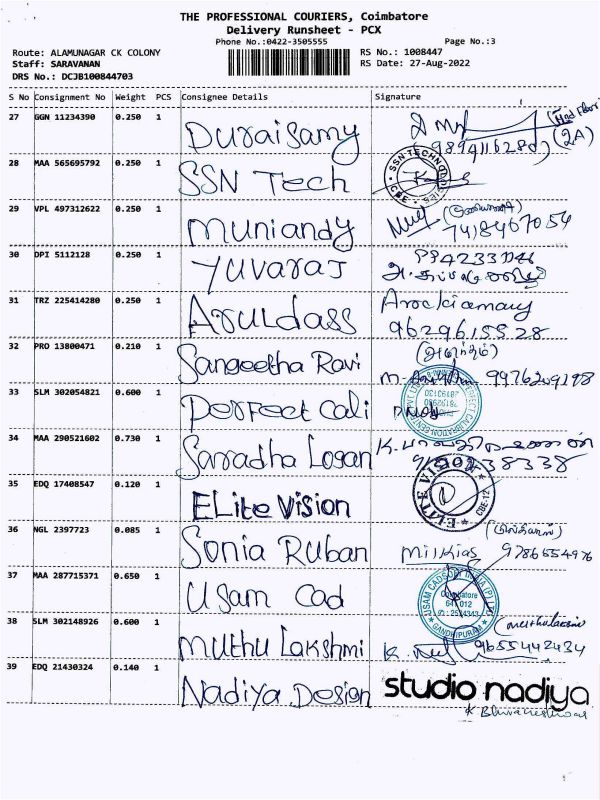 THE PROFESSIONAL COURIERS, Coimbatore
Delivery Runsheet - PCX
Phone No.:0422-3505555 Page No.:3
Route: ALAMUNAGAR CK COLONY RS No.: 1008447
Staff: SARAVANAN RS Date: 27-Aug-2022
DRS No.: DCJB100844703
S No Consignment No Weight PCS Consignee Details Signature
27 GGN 11234390 0.250 1 Duraisamy
(2A)
28 MAA 565695792 0.250 1 SSN Tech
29 VPL 497312622 0.250 1 Muniandy
7418467054
30 DPI 5112128 0.250 1 Yuvaraj
31 TRZ 225414280 0.250 1 Aruldass Arockiamary
9629615528
32 PRO 13800471 0.210 1 Sangeetha Ravi
33 SLM 302054821 0.600 1 Perfect Cali
34 MAA 290521602 0.730 1 Sarradha Logan
35 EDQ 17408547 0.120 1 ELite Vision ELITE VISION
36 NGL 2397723 0.085 1 Sonia Ruban
9786554976
37 MAA 287715371 0.650 1 Usam Cad
Coimbatore
641 012
GANDHIPURAM
38 SLM 302148926 0.600 1 Muthu Lakshmi
9655442434
39 EDQ 21430324 0.140 1 Nadiya Design studio nadiya